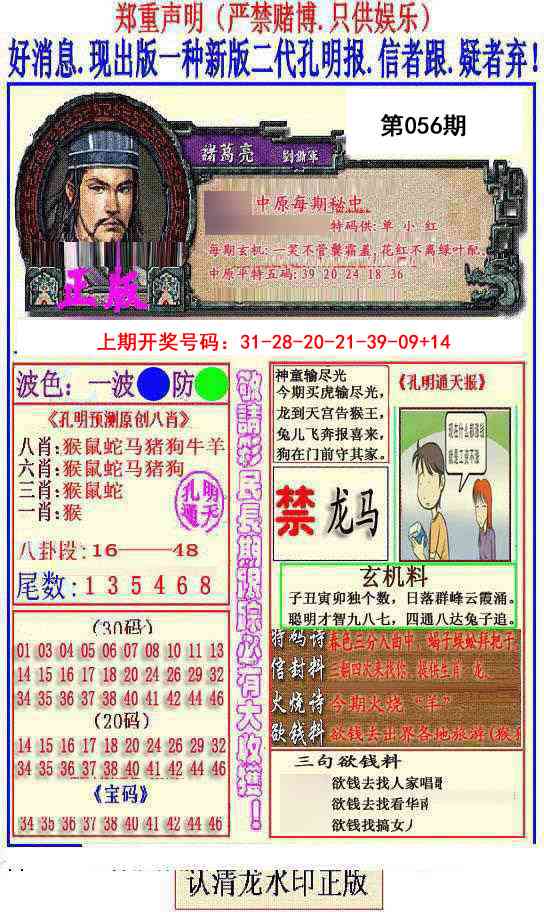 郑重声明（严禁赌博.只供娱乐）
好消息.现出版一种新版二代孔明报.信者跟.疑者弃！
第056期
諸葛亮 劉漸軍
中原每期秘中
特码供:单 小 红
每期玄机:一笑不管爨霜盖,花红不离绿叶配.
中原平特五码:39 20 24 18 36
正版
上期开奖号码：31-28-20-21-39-09+14
波色：一波 防
《孔明预测原创八肖》
八肖:猴鼠蛇马猪狗牛羊
六肖:猴鼠蛇马猪狗
三肖:猴鼠蛇
一肖:猴
孔明
通天
八卦段:16——48
尾数:1 3 5 4 6 8
(30码)
01 03 04 05 06 07 08 10 11 13
14 15 16 17 18 20 24 26 29 32
34 35 36 37 38 40 41 42 44 46
(20码)
14 15 16 17 18 20 24 26 29 32
34 35 36 37 38 40 41 42 44 46
《宝码》
34 35 36 37 38 40 41 42 44 46
敬請彩民長期跟踪必有大收獲！
神童输尽光
今期买虎输尽光,
龙到天宫告猴王,
兔儿飞奔报喜来,
狗在门前守其家。
《孔明通天报》
现在什么都涨钱
就是工资不涨
禁 龙马
玄机料
子丑寅卯独个数，日落群峰云霞涌。
聪明才智九八七，四通八达兔子追。
特码诗 春色三分入苗中，蝎子蜈蚣拜把子
信封料 三翻四次来找你，提供生肖：龙、
火烧诗 今期火烧“羊”
欲钱料 欲钱去出界各地旅游(猴
三句欲钱料
欲钱去找人家唱歌
欲钱去找看华南
欲钱找搞女人
认清龙水印正版